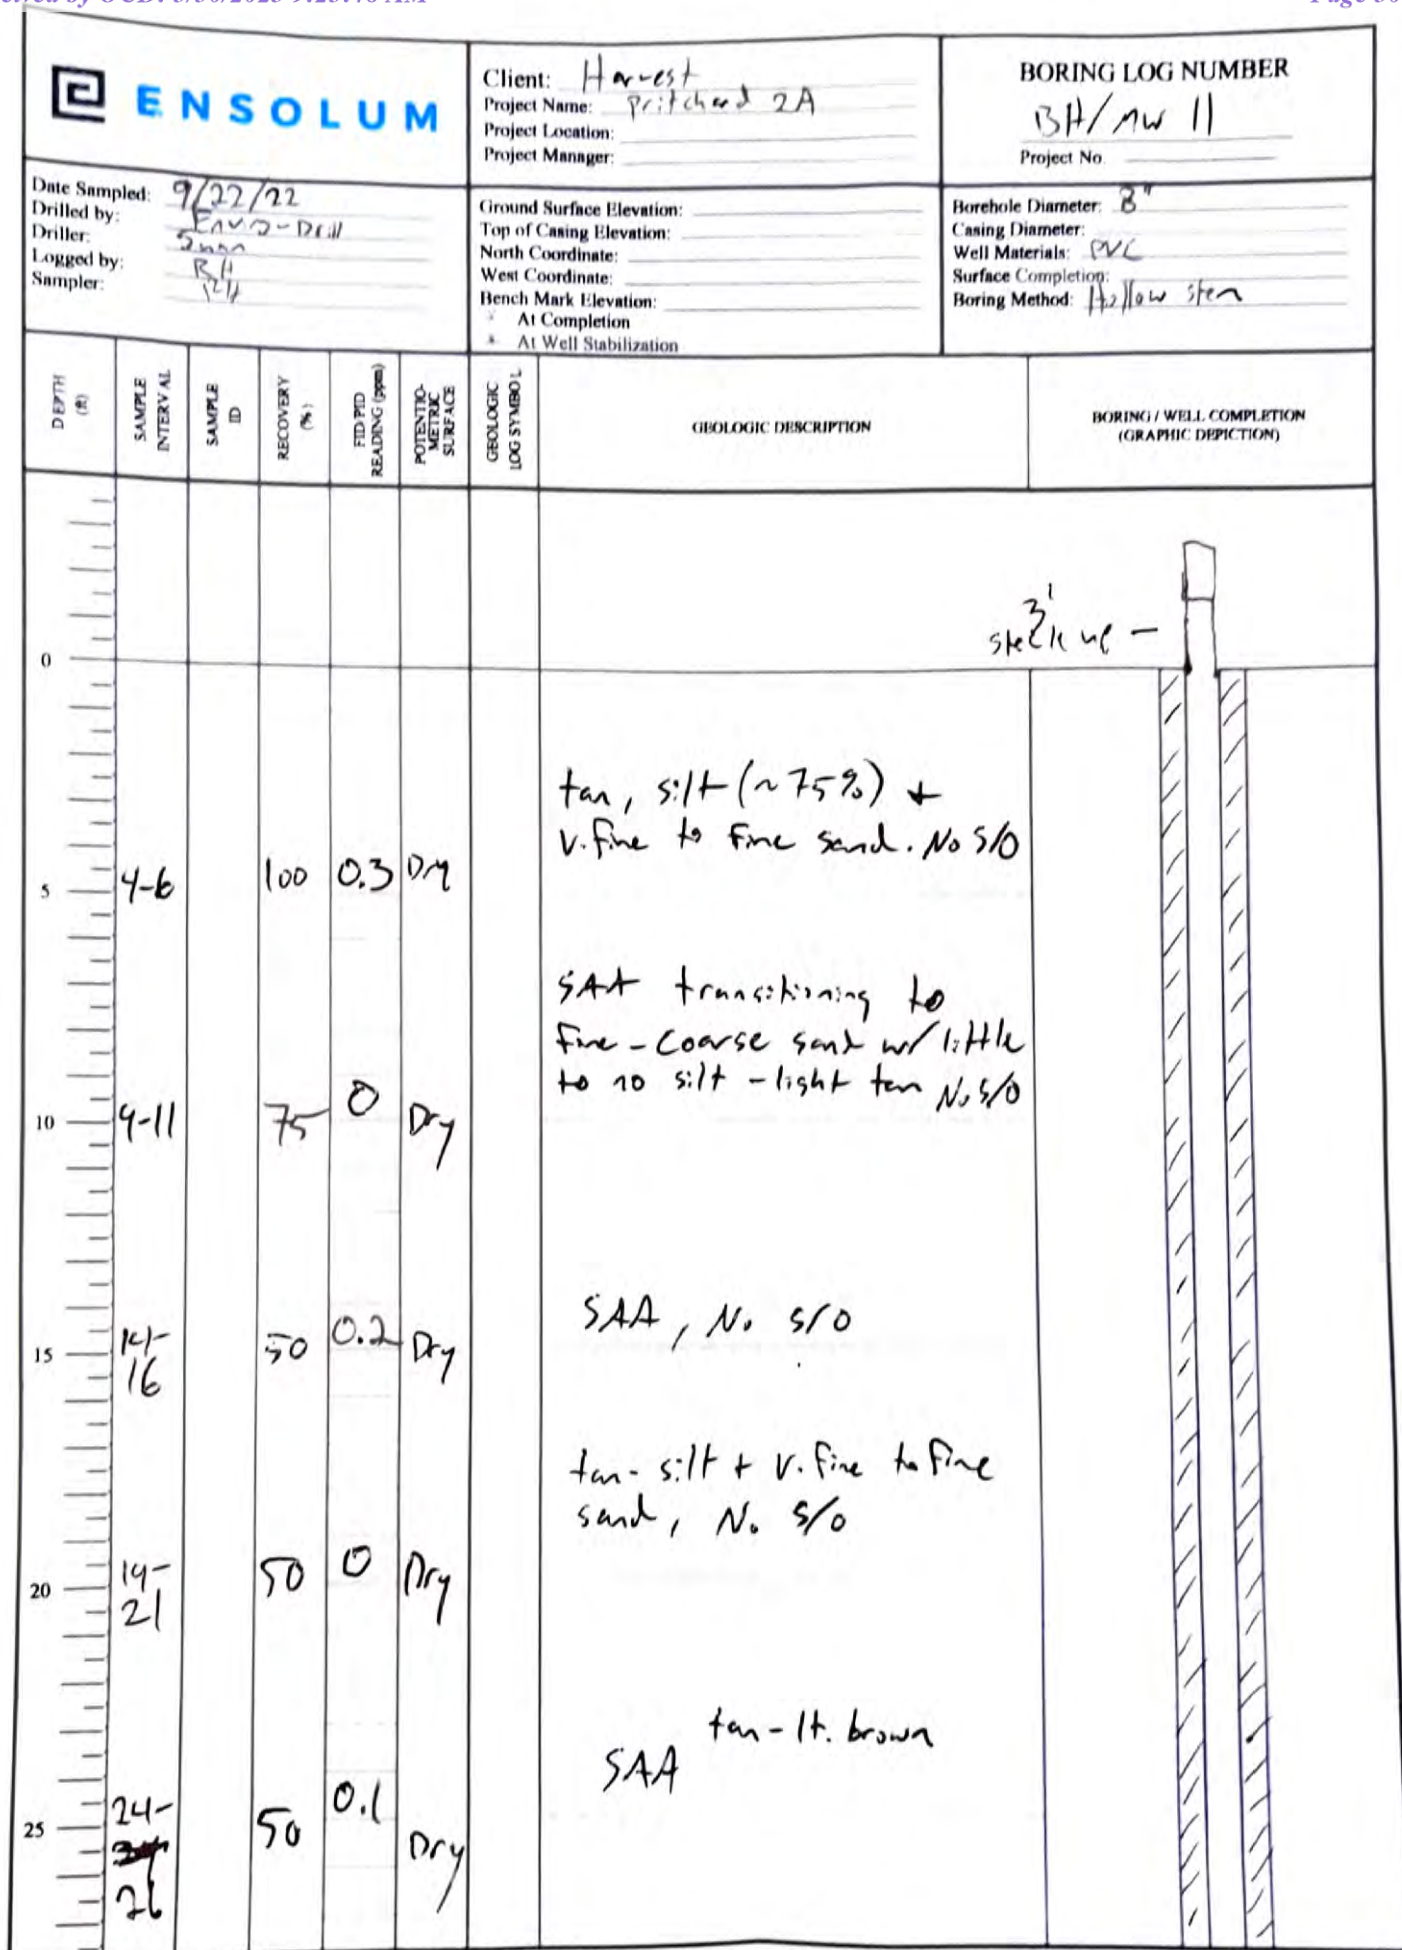 Received by OCD: 3/30/2023 9:23:48 AM
ENSOLUM
Client: Harvest
Project Name: Pritchard 2A
Project Location:
Project Manager:
BORING LOG NUMBER
BH/MW 11
Project No.
Date Sampled: 9/22/22
Drilled by: Enviro-Drill
Driller:
Logged by: BH
Sampler: BH
Ground Surface Elevation:
Top of Casing Elevation:
North Coordinate:
West Coordinate:
Bench Mark Elevation:
At Completion
At Well Stabilization
Borehole Diameter: 8"
Casing Diameter:
Well Materials: PVC
Surface Completion:
Boring Method: Hollow stem
DEPTH (ft)
SAMPLE INTERVAL
SAMPLE ID
RECOVERY (%)
FID/PID READING (ppm)
POTENTIO-METRIC SURFACE
GEOLOGIC LOG SYMBOL
GEOLOGIC DESCRIPTION
BORING / WELL COMPLETION
(GRAPHIC DEPICTION)
3'
stick up -
0
tan, silt (~75%) +
v. fine to fine sand. No S/O
5 4-6 100 0.3 Dry
SAA transitioning to
fine - coarse sand w/ little
to no silt - light tan No S/O
10 9-11 75 0 Dry
SAA, No S/O
15 14-16 50 0.2 Dry
tan - silt + v. fine to fine
sand, No S/O
20 19-21 50 0 Dry
tan - lt. brown
SAA
25 24-26 50 0.1 Dry